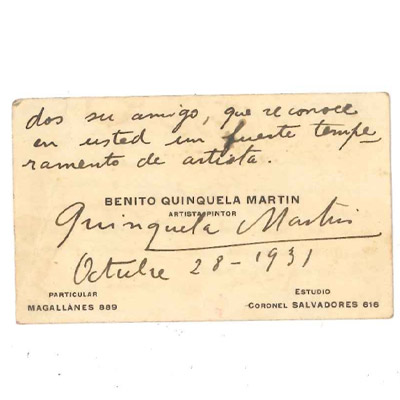 dos su amigo, que reconoce
en usted un fuerte tempe-
ramento de artista.
BENITO QUINQUELA MARTIN
ARTISTA PINTOR
Quinquela Martin
Octubre 28-1931
PARTICULAR
MAGALLANES 889
ESTUDIO
CORONEL SALVADORES 616